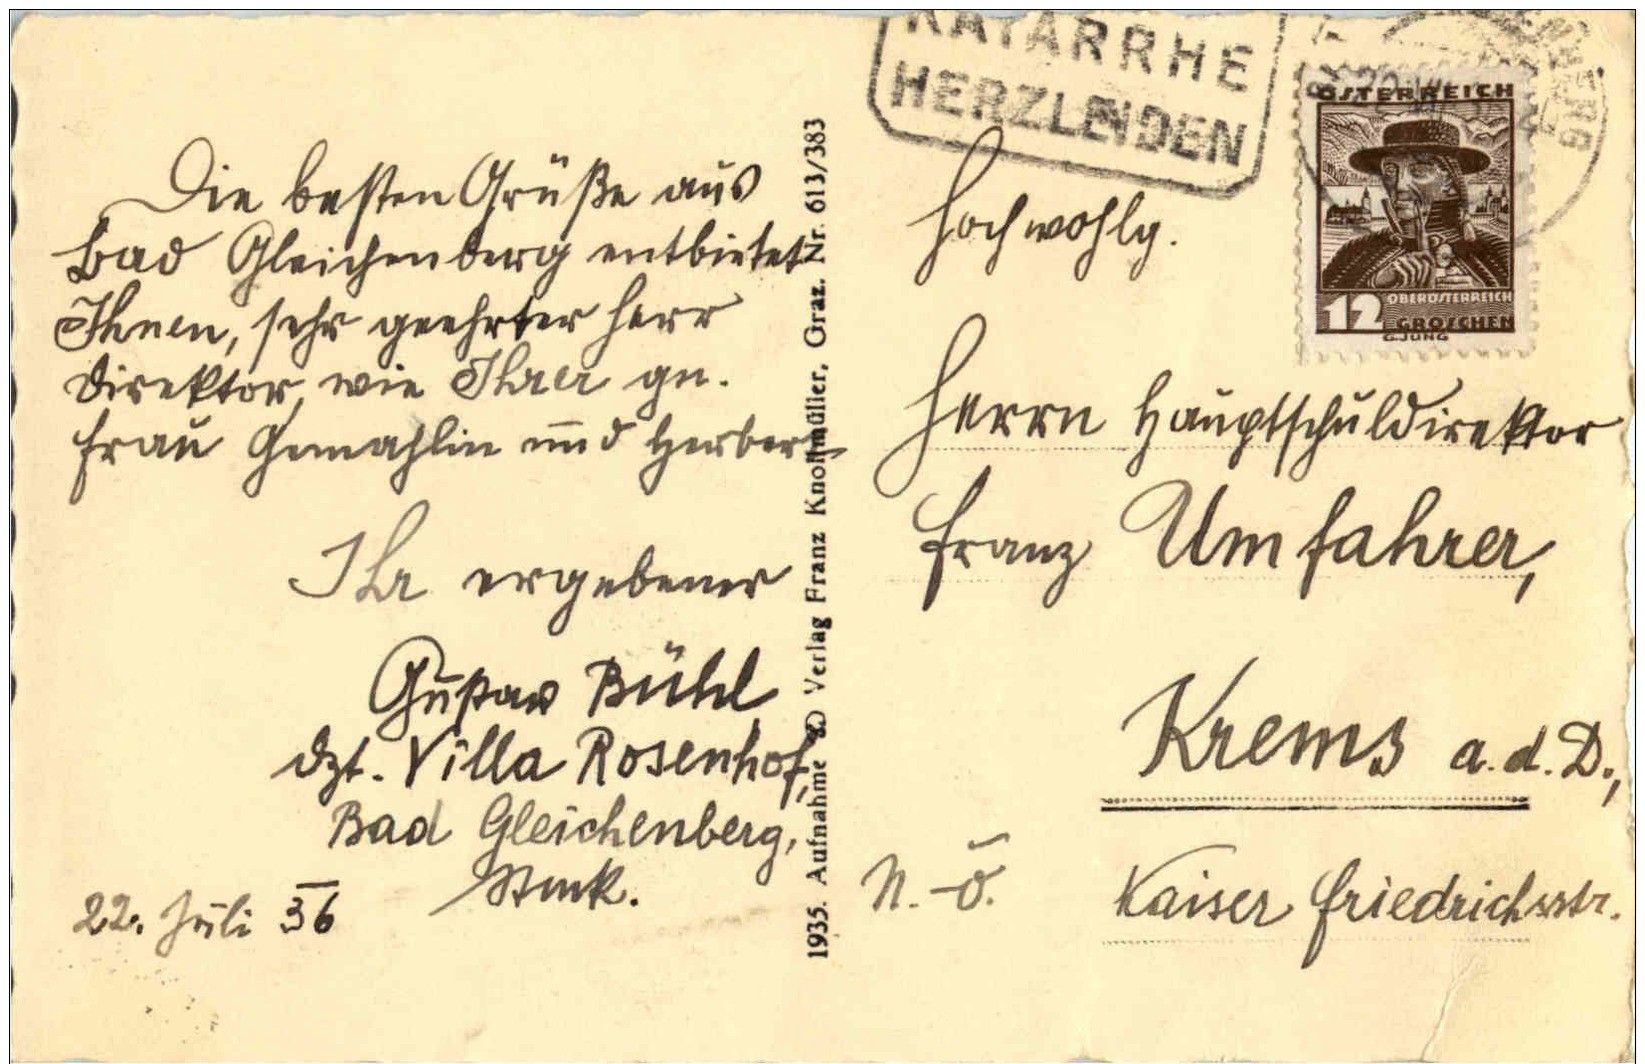 Die besten Grüße aus
Bad Gleichenberg entbietet
Ihnen, sehr geehrter Herr
Direktor, wie Ihrer gn.
Frau Gemahlin und Herbert
Ihr ergebener
Gustav Bühl
dzt. Villa Rosenhof,
Bad Gleichenberg,
Stmk.
22. Juli 36
1935. Aufnahme & Verlag Franz Knollmüller, Graz. Nr. 613/383
KATARRHE
HERZLEIDEN
ÖSTERREICH
12
OBERÖSTERREICH
GROSCHEN
G. JUNG
Hochwohlg.
Herrn Hauptschuldirektor
Franz Umfahrer,
Krems a. d. D.,
N.-Ö.
Kaiser Friedrichsstr.